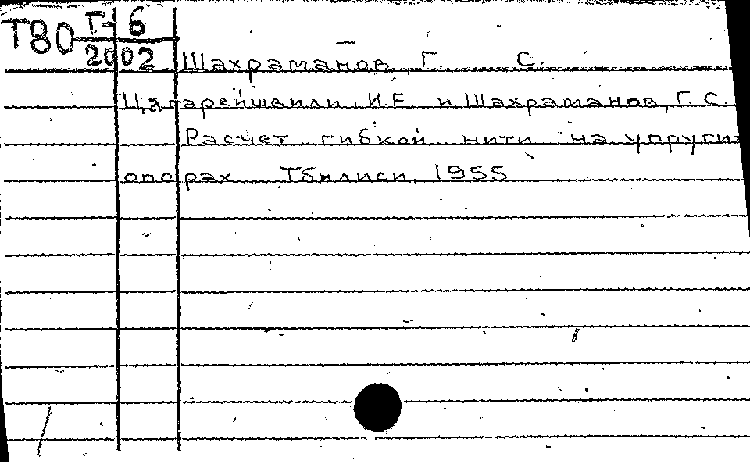 Т80 Г-6
2002
Шахраманов, Г. С.
И.Е. и Шахраманов, Г.С.
Расчет гибкой нити на упруги
опорах Тбилиси, 1955